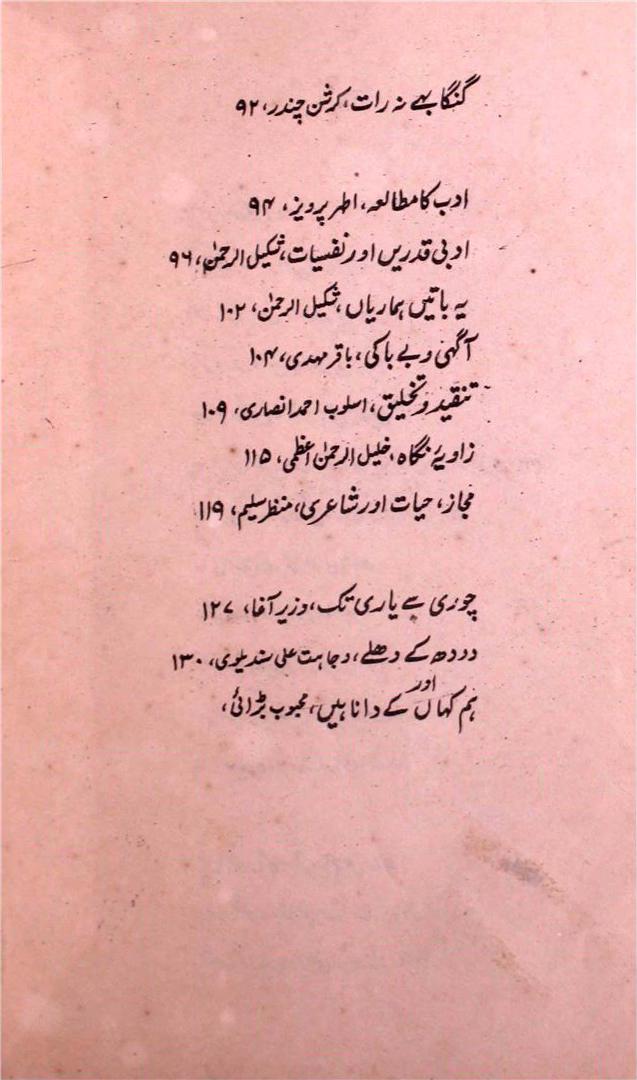 گنگا بہے نہ رات، کرشن چندر، ۹۲
ادب کا مطالعہ، اطہر پرویز، ۹۴
ادبی قدریں اور نفسیات، شکیل الرحمٰن، ۹۶
یہ باتیں ہماریاں، شکیل الرحمٰن، ۱۰۲
آگہی و بے باکی، باقر مہدی، ۱۰۴
تنقید و تخلیق، اسلوب احمد انصاری، ۱۰۹
زاویۂ نگاہ، خلیل الرحمٰن اعظمی، ۱۱۵
مجاز، حیات اور شاعری، منظر سلیم، ۱۱۹
چوری سے یاری تک، وزیر آغا، ۱۲۷
دودھ کے دھلے، وجاہت علی سندیلوی، ۱۳۰
اور
ہم کہاں کے دانا ہیں، محبوب بڑائی،